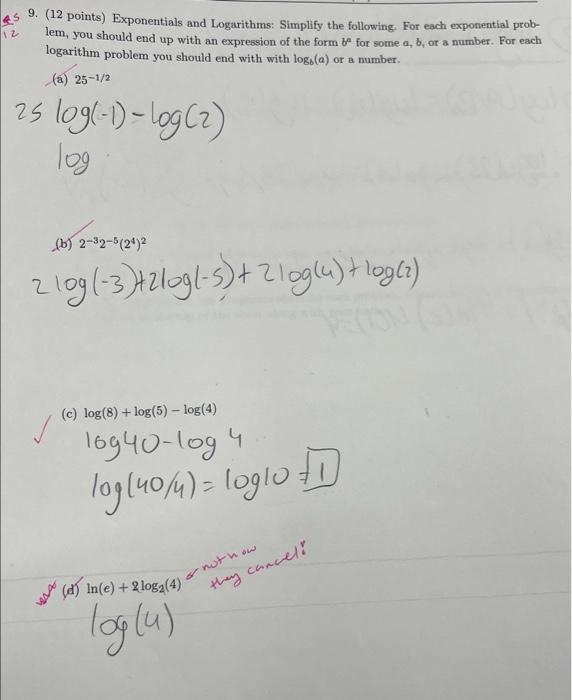 9. (12 points) Exponentials and Logarithms: Simplify the following. For each exponential prob-
lem, you should end up with an expression of the form bᵃ for some a, b, or a number. For each
12
logarithm problem you should end with with log_b(a) or a number.
(a) 25^{-1/2}
25 log(-1) - log(2)
log
(b) 2^{-3}2^{-5}(2^4)^2
2 log(-3)+2log(-5)+2log(4)+log(2)
(c) log(8) + log(5) − log(4)
log40-log 4
log(40/4) = log10 = 1
not how
they cancel!
(d) ln(e) + 2log₂(4)
log(4)